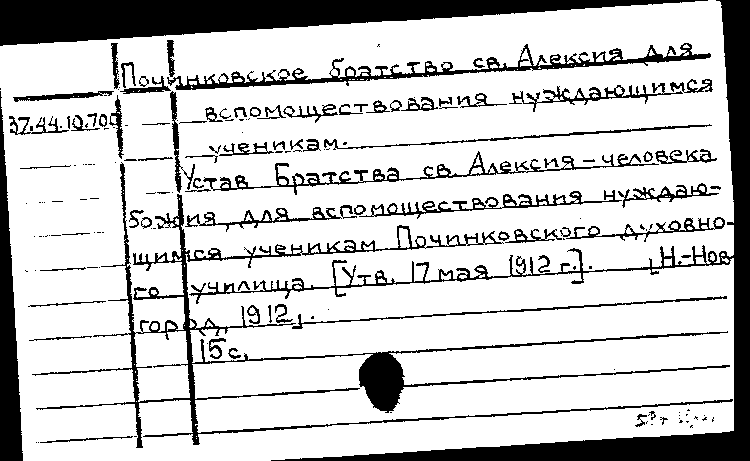 Починковское братство св. Алексия для
37.44.10.700 вспомоществования нуждающимся
ученикам.
Устав Братства св. Алексия-человека
божия, для вспомоществования нуждаю-
щимся ученикам Починковского духовно-
го училища. [Утв. 17 мая 1912 г.]. [Н.-Нов-
город, 1912].
15 с.